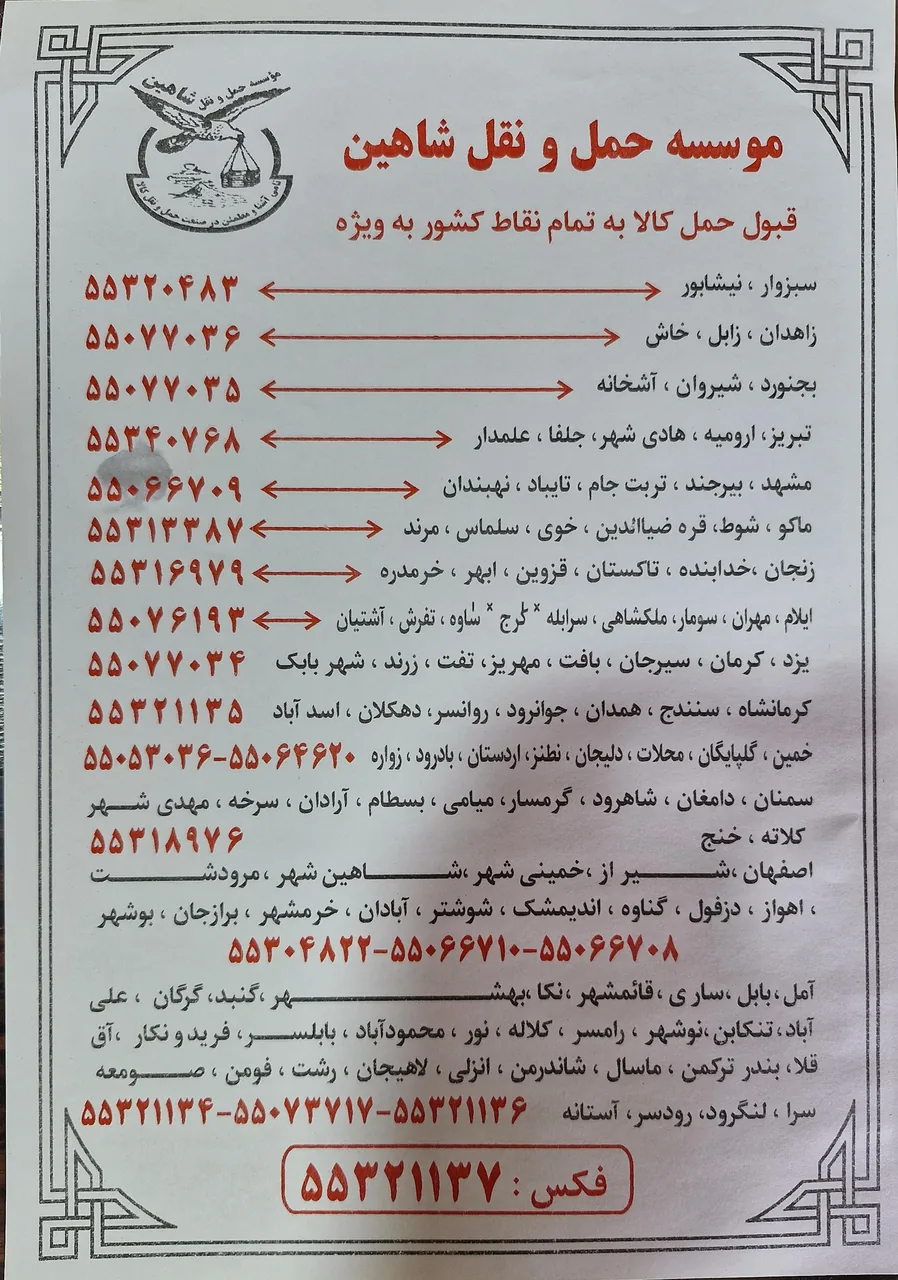 موسسه حمل و نقل شاهین
نامی آشنا و مطمئن در صنعت حمل و نقل کالا
موسسه حمل و نقل شاهین
قبول حمل کالا به تمام نقاط کشور به ویژه
سبزوار ، نیشابور ۵۵۳۲۰۴۸۳
زاهدان ، زابل ، خاش ۵۵۰۷۷۰۳۶
بجنورد ، شیروان ، آشخانه ۵۵۰۷۷۰۳۵
تبریز، ارومیه ، هادی شهر، جلفا ، علمدار ۵۵۳۴۰۷۶۸
مشهد ، بیرجند ، تربت جام ، تایباد ، نهبندان ۵۵۰۶۶۷۰۹
ماکو ، شوط، قره ضیاالدین ، خوی ، سلماس ، مرند ۵۵۳۱۳۳۸۷
زنجان ،خدابنده ، تاکستان ، قزوین ، ابهر ، خرمدره ۵۵۳۱۶۹۷۹
ایلام ، مهران ، سومار، ملکشاهی ، سرابله × کرج × ساوه ، تفرش ، آشتیان ۵۵۰۷۶۱۹۳
یزد ، کرمان ، سیرجان ، بافت ، مهریز، تفت ، زرند ، شهر بابک ۵۵۰۷۷۰۳۴
کرمانشاه ، سنندج ، همدان ، جوانرود ، روانسر، دهکلان ، اسد آباد ۵۵۳۲۱۱۳۵
خمین ، گلپایگان ، محلات ، دلیجان ، نطنز، اردستان ، بادرود ، زواره ۵۵۰۵۳۰۳۶-۵۵۰۶۴۶۲۰
سمنان ، دامغان ، شاهرود ، گرمسار، میامی ، بسطام ، آرادان ، سرخه ، مهدی شهر
کلاته ، خنج ۵۵۳۱۸۹۷۶
اصفهان ،شیر از ،خمینی شهر ،شاهین شهر ،مرودشت
، اهواز ، دزفول ، گناوه ، اندیمشک ، شوشتر ، آبادان ، خرمشهر ، برازجان ، بوشهر
۵۵۳۰۴۸۲۲-۵۵۰۶۶۷۱۰-۵۵۰۶۶۷۰۸
آمل ،بابل ،سار ی ، قائمشهر ،نکا ،بهشهر ،گنبد، گرگان ، علی
آباد، تنکابن ،نوشهر ، رامسر ، کلاله ، نور ، محمودآباد ، بابلسر، فرید و نکار ،آق
قلا، بندر ترکمن ، ماسال ، شاندرمن ، انزلی ، لاهیجان ، رشت ، فومن ، صومعه
سرا ، لنگرود، رودسر ، آستانه ۵۵۳۲۱۱۳۴-۵۵۰۷۳۷۱۷-۵۵۳۲۱۱۳۶
فکس : ۵۵۳۲۱۱۳۷